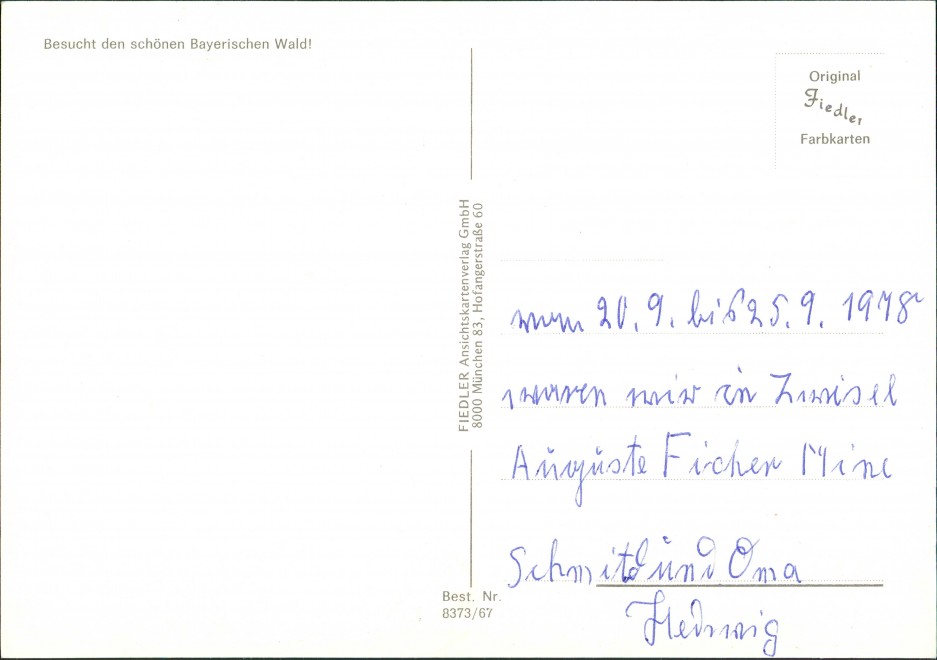 Besucht den schönen Bayerischen Wald!
Original
Fiedler
Farbkarten
FIEDLER Ansichtskartenverlag GmbH
8000 München 83, Hofangerstraße 60
vom 20. 9. bis 25. 9. 1978
waren wir in Zwisel
Auguste Ficher Mine
Schmitd und Oma
Hedwig
Best. Nr.
8373/67